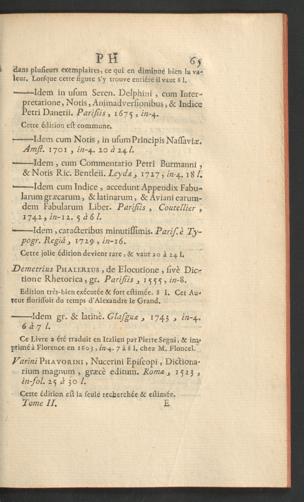 PH 65
dans plusieurs exemplaires, ce qui en diminue bien la va-
leur. Lorsque cette figure s'y trouve entiére il vaut 8 l.
——Idem in usum Seren. Delphini, cum Inter-
pretatione, Notis, Animadversionibus, & Indice
Petri Danetii. Parisiis, 1675, in-4.
Cette édition est commune.
——Idem cum Notis, in usum Principis Nassaviæ.
Amst. 1701, in-4. 20 à 24 l.
——Idem, cum Commentario Petri Burmanni,
& Notis Ric. Bentleii. Leydæ, 1727, in-4. 18 l.
——Idem cum Indice, accedunt Appendix Fabu-
larum græcarum, & latinarum, & Aviani earum-
dem Fabularum Liber. Parisiis, Coutellier,
1742, in-12. 5 à 6 l.
——Idem, caracteribus minutissimis. Paris. è Ty-
pogr. Regiâ, 1729, in-16.
Cette jolie édition devient rare, & vaut 20 à 24 l.
Demetrius PHALEREUS, de Elocutione, sivè Dic-
tione Rhetorica, gr. Parisiis, 1555, in-8.
Edition très-bien exécutée & fort estimée. 8 l. Cet Au-
teur florissoit du temps d'Alexandre le Grand.
——Idem gr. & latinè. Glasguæ, 1743, in-4.
6 à 7 l.
Ce Livre a été traduit en Italien par Pierre Segni, & im-
primé à Florence en 1603, in-4. 7 à 8 l. chez M. Floncel.
Varini PHAVORINI, Nucerini Episcopi, Dictiona-
rium magnum, græcè editum. Romæ, 1523,
in-fol. 25 à 30 l.
Cette édition est la seule recherchée & estimée.
Tome II. E